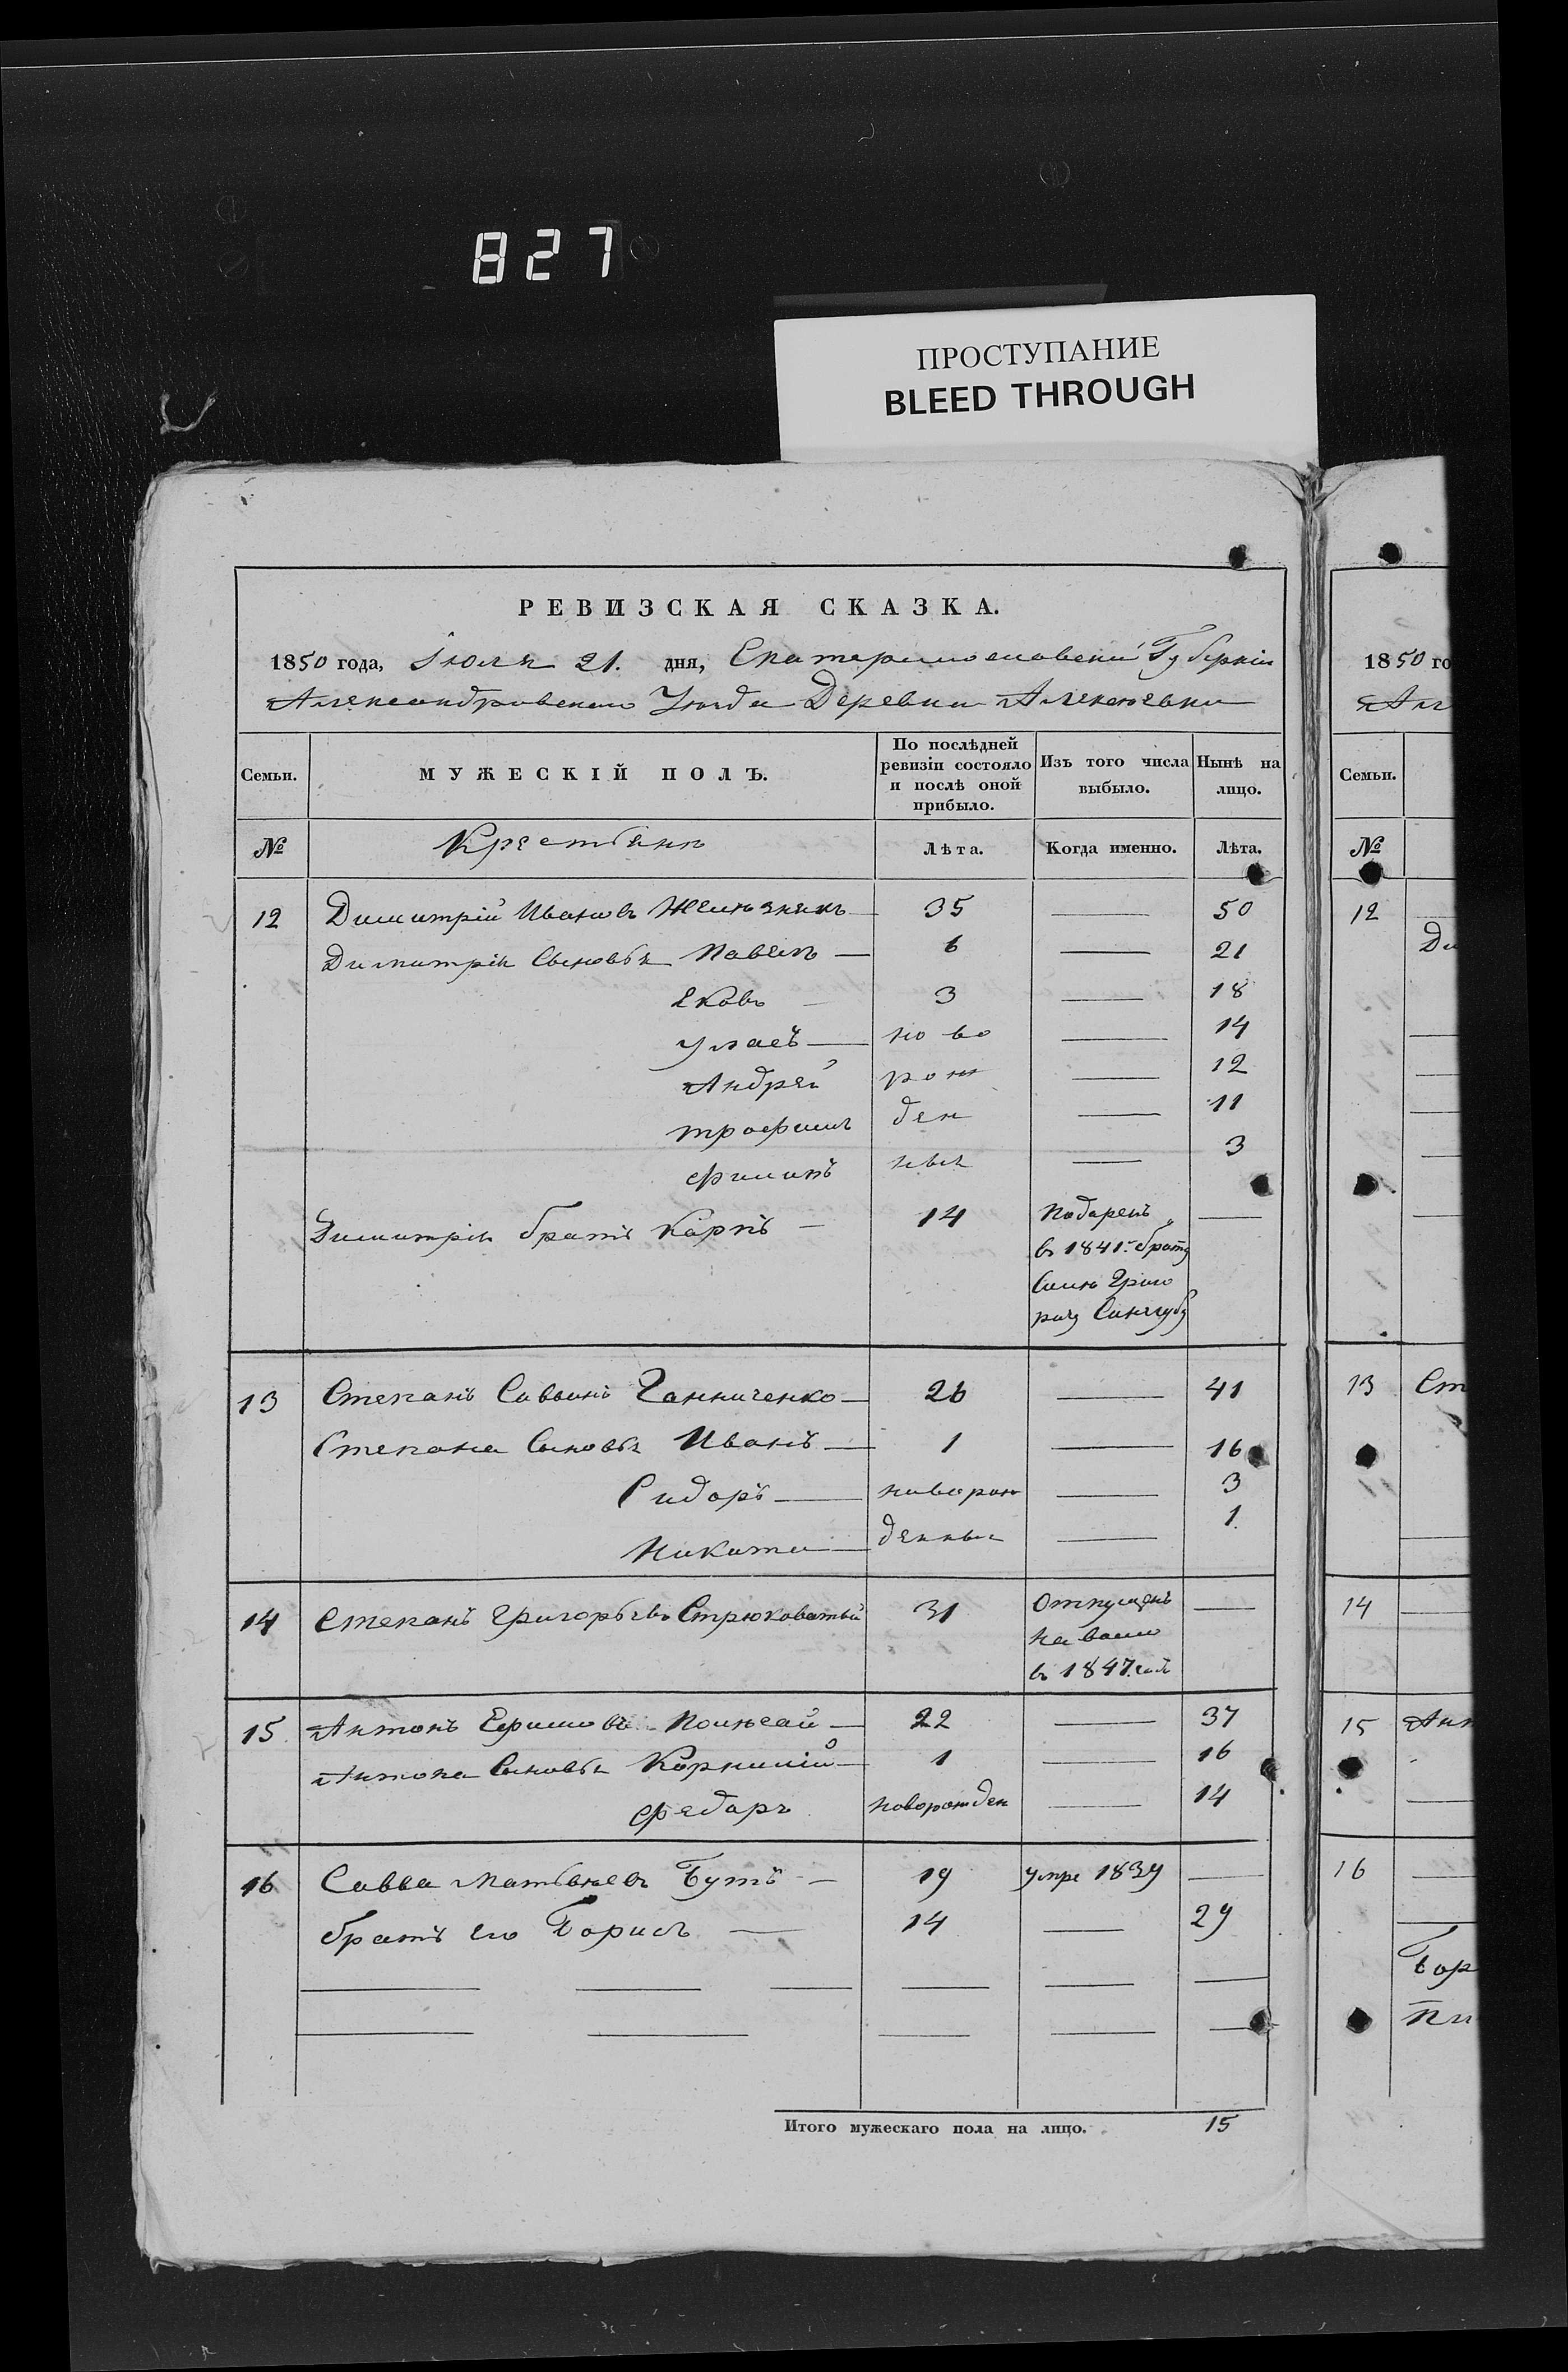 827
ПРОСТУПАНИЕ
BLEED THROUGH
РЕВИЗСКАЯ СКАЗКА.
1850 года, Іюля 21. дня, Екатеринославской Губерніи
Александровскаго Уѣзда Деревни Алексѣевки
Семьи. МУЖЕСКІЙ ПОЛЪ. По послѣдней ревизіи состояло и послѣ оной прибыло. Изъ того числа выбыло. Нынѣ на лицо.
№ Крестьянъ Лѣта. Когда именно. Лѣта.
12 Димитрій Ивановъ Желѣзнякъ 35 — 50
Димитрія Сыновья Павелъ — 6 — 21
Яковъ — 3 — 18
но во — 14
Андрей рож — 12
трофимъ ден — 11
филипъ ныя — 3
Димитрія братъ Карпъ — 14 Подаренъ —
въ 1841. брату
Григо
рию
13 Степанъ Саввинъ Ганниченко — 26 — 41
Степана Сыновья Иванъ — 1 — 16
Сидоръ — новорож — 3
Никита — денныя — 1.
14 Степанъ Григорьевъ Стрюковатый 31 Отпущенъ —
на волю
въ 1847. годѣ
15 Антонъ Ефимовъ — 22 — 37
Антона Сыновья Корнилій — 1 — 16
федоръ новорожден — 14
16 Савва Матвѣевъ Бутъ — 19 умре 1839 —
братъ его Борисъ — 14 — 29
Итого мужескаго пола на лицо. 15
1850 го
Ал
Семьи.
№
12
Ди
13 Ст
14
15 Ант
16
Бор